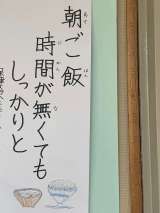 朝ご飯
時間が無くても
しっかりと